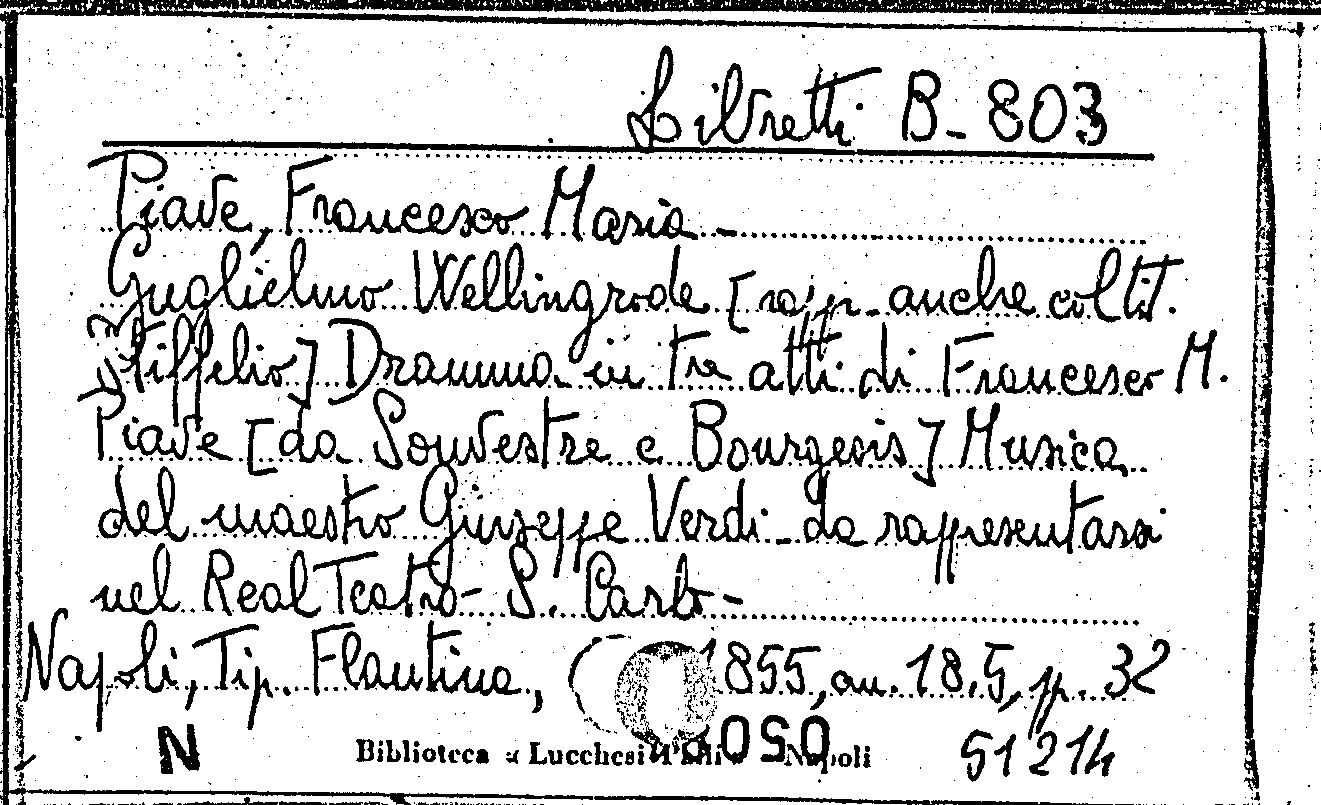 Libretti B-803
Piave, Francesco Maria -
Guglielmo Wellingrode [rapp. anche col tit.
Stiffelio] Dramma in tre atti di Francesco M.
Piave [da Souvestre e Bourgeois] Musica
del maestro Giuseppe Verdi - da rappresentarsi
nel Real Teatro - S. Carlo -
Napoli, Tip. Flautina, 1855, in. 18.5, p. 32
N Biblioteca Lucchesi Palli Napoli 51214